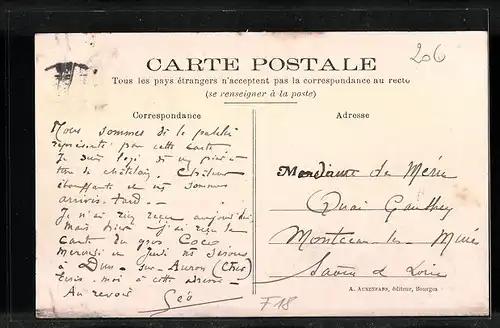 206
CARTE POSTALE
Tous les pays étrangers n'acceptent pas la correspondance au recto
(se renseigner à la poste)
Correspondance
Nous sommes ds le patelin
représenté par cette carte.
Je suis logé ds un
de châtelain. Chaleur
étouffante et ns sommes
arrivés tard —
Je n'ai rien reçu aujourd'hui
mais hier j'ai reçu la
carte du gros Coco
Mercredi et Jeudi ns serons
à Dun-sur-Auron (Cher)
Ecris-moi à cette adresse —
Au revoir
Géo
Adresse
Madame de
Quai Gauthey
Montceau-les-Mines
Saône & Loire
A. AUXENFANS, éditeur, Bourges
F18